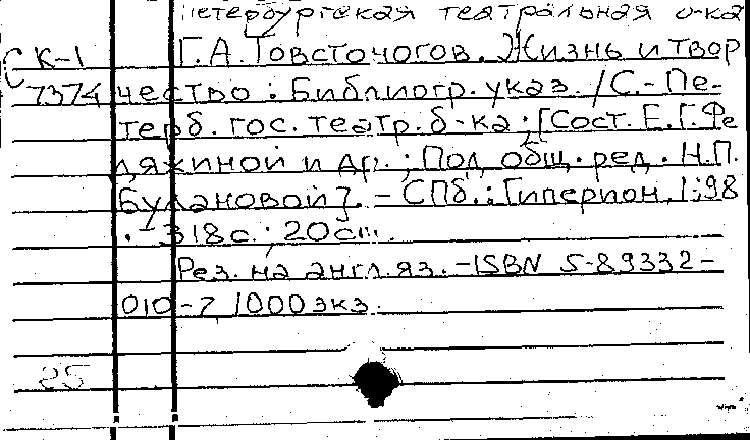 Петербургская театральная б-ка
К-1 Г.А.Товстоногов. Жизнь и твор
7374 чество : Библиогр. указ. / С.-Пе-
терб. гос. театр. б-ка ; [Сост. Е.Г.Фе
дяхиной и др. ; Под общ. ред. Н.П.
Булановой]. - СПб. : Гиперион, 1998
. - 318с. ; 20см.
Рез. на англ.яз. - ISBN 5-89332-
010-7 1000экз.
25